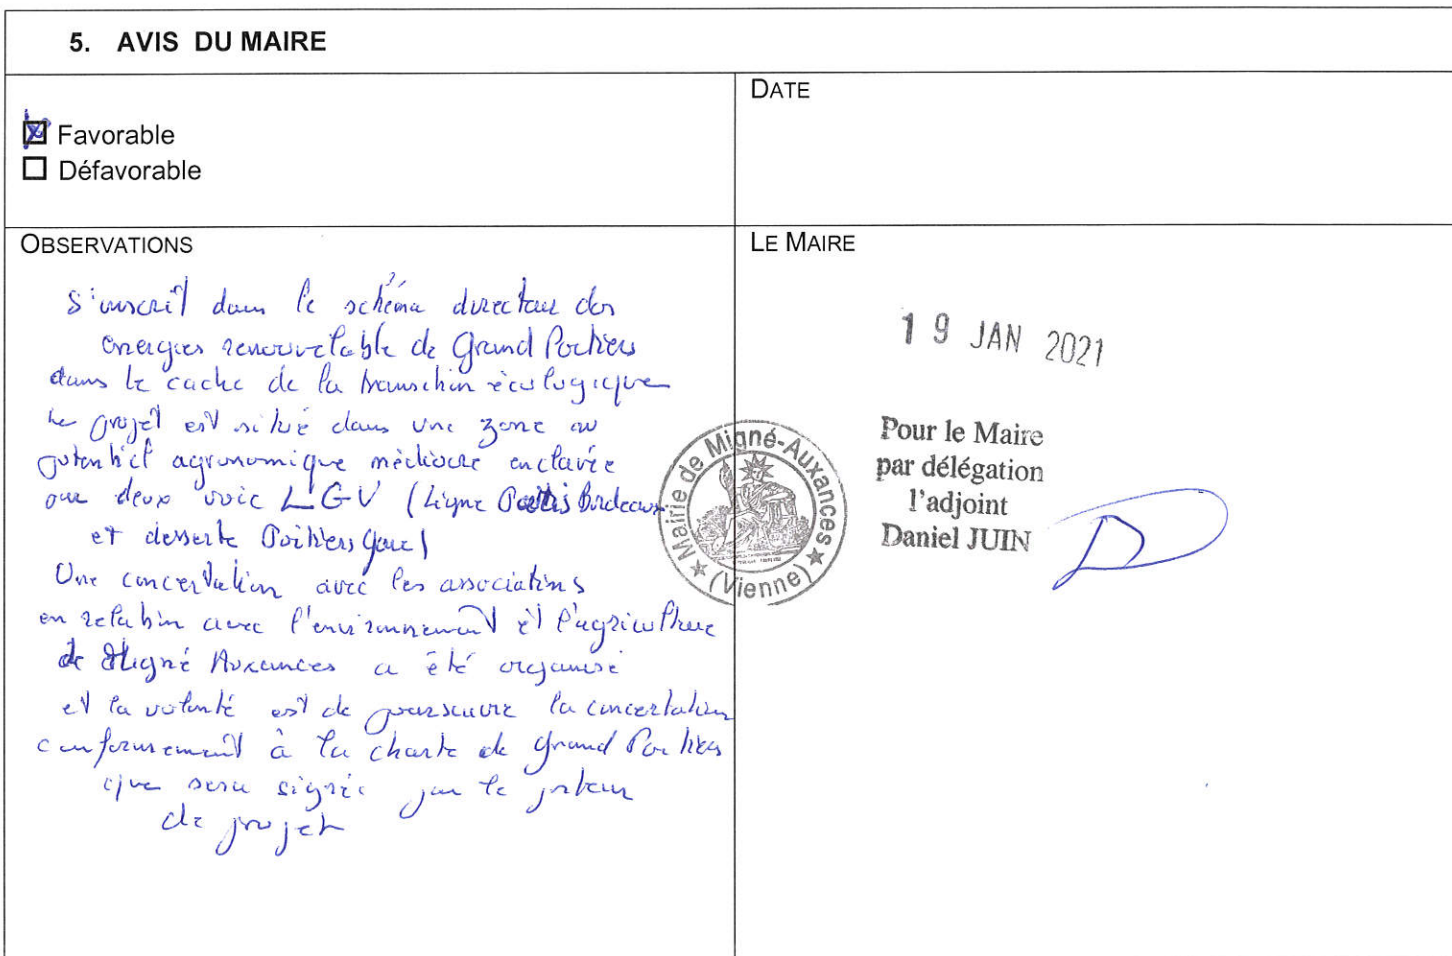 5. AVIS DU MAIRE
Favorable
Défavorable
DATE
OBSERVATIONS
S'inscrit dans le schéma directeur des
energies renouvelable de Grand Poitiers
dans le cadre de la transition écologique
Le projet est situé dans une zone au
potentiel agronomique médiocre enclavée
par deux voie LGV (Ligne Bordeaux
et desserte Poitiers Gare)
Une concertation avec les associations
en relation avec l'environnement et l'agriculture
de Migné Auxances a été organisé
et la volonté est de poursuivre la concertation
conformement à la charte de Grand Poitiers
que sera signée par le porteur
de projet
LE MAIRE
19 JAN 2021
Pour le Maire
par délégation
l'adjoint
Daniel JUIN
Mairie de Migné-Auxances
(Vienne)